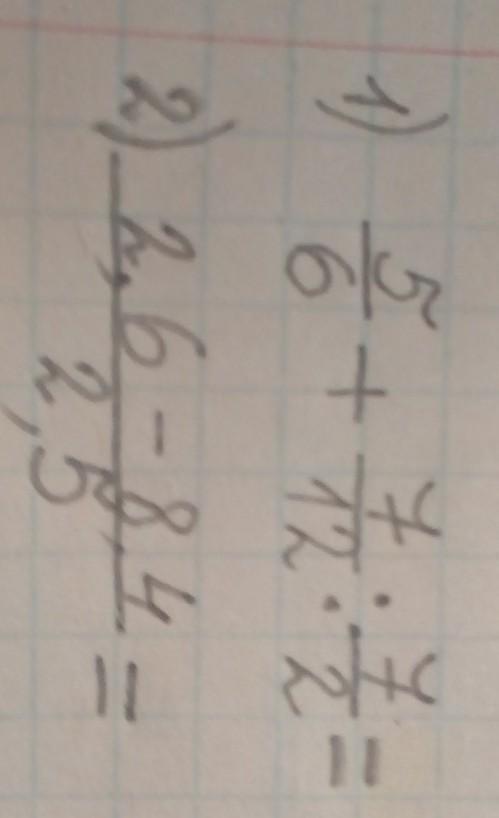 1) 5/6 + 7/12 : 7/2 =
2) (2,6 - 8,4)/2,5 =